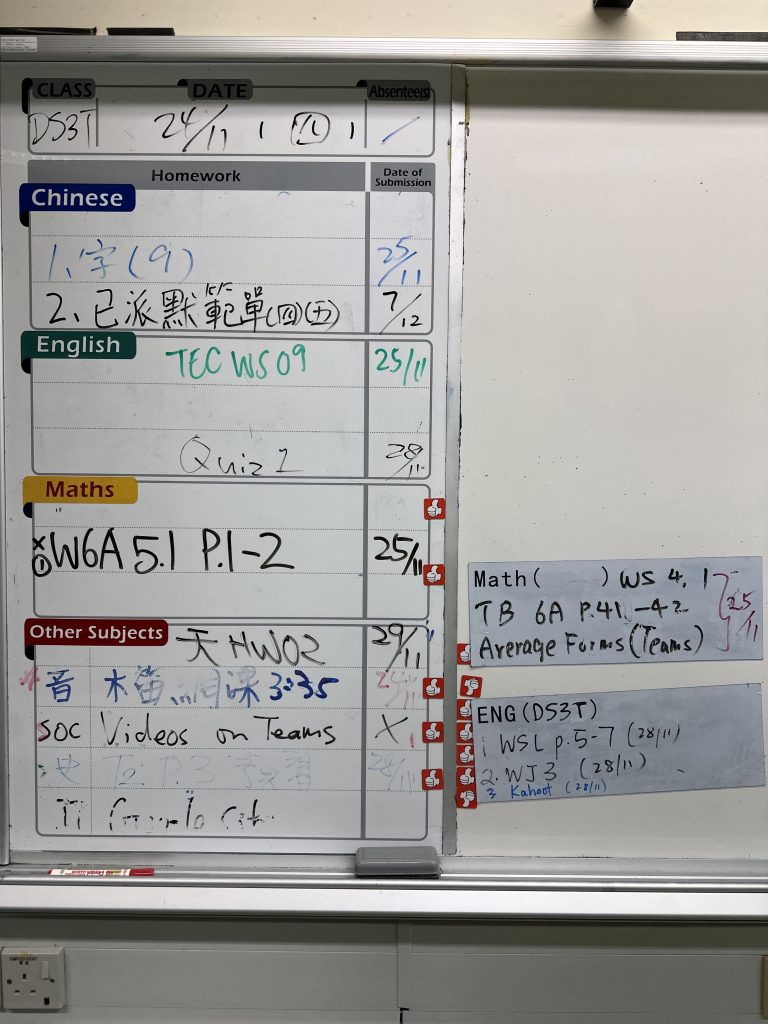 CLASS DATE Absentee(s)
DS3T 24/11 (四)
Homework Date of Submission
Chinese
1、字(9) 25/11
2、已派默範單(四)(五) 7/12
English
TEC WS 09 25/11
Quiz 1 28/11
Maths
W6A 5.1 P.1-2 25/11
Other Subjects
天 HW02 29/11
音 木笛網課 3:35 24/11
SOC Videos on Teams X
史 P.3 預習 28/11
Math ( ) WS 4.1
TB 6A P.41-42
Average Forms (Teams)
25/11
ENG (DS3T)
1 WSL p.5-7 (28/11)
2. WJ3 (28/11)
3 Kahoot (28/11)